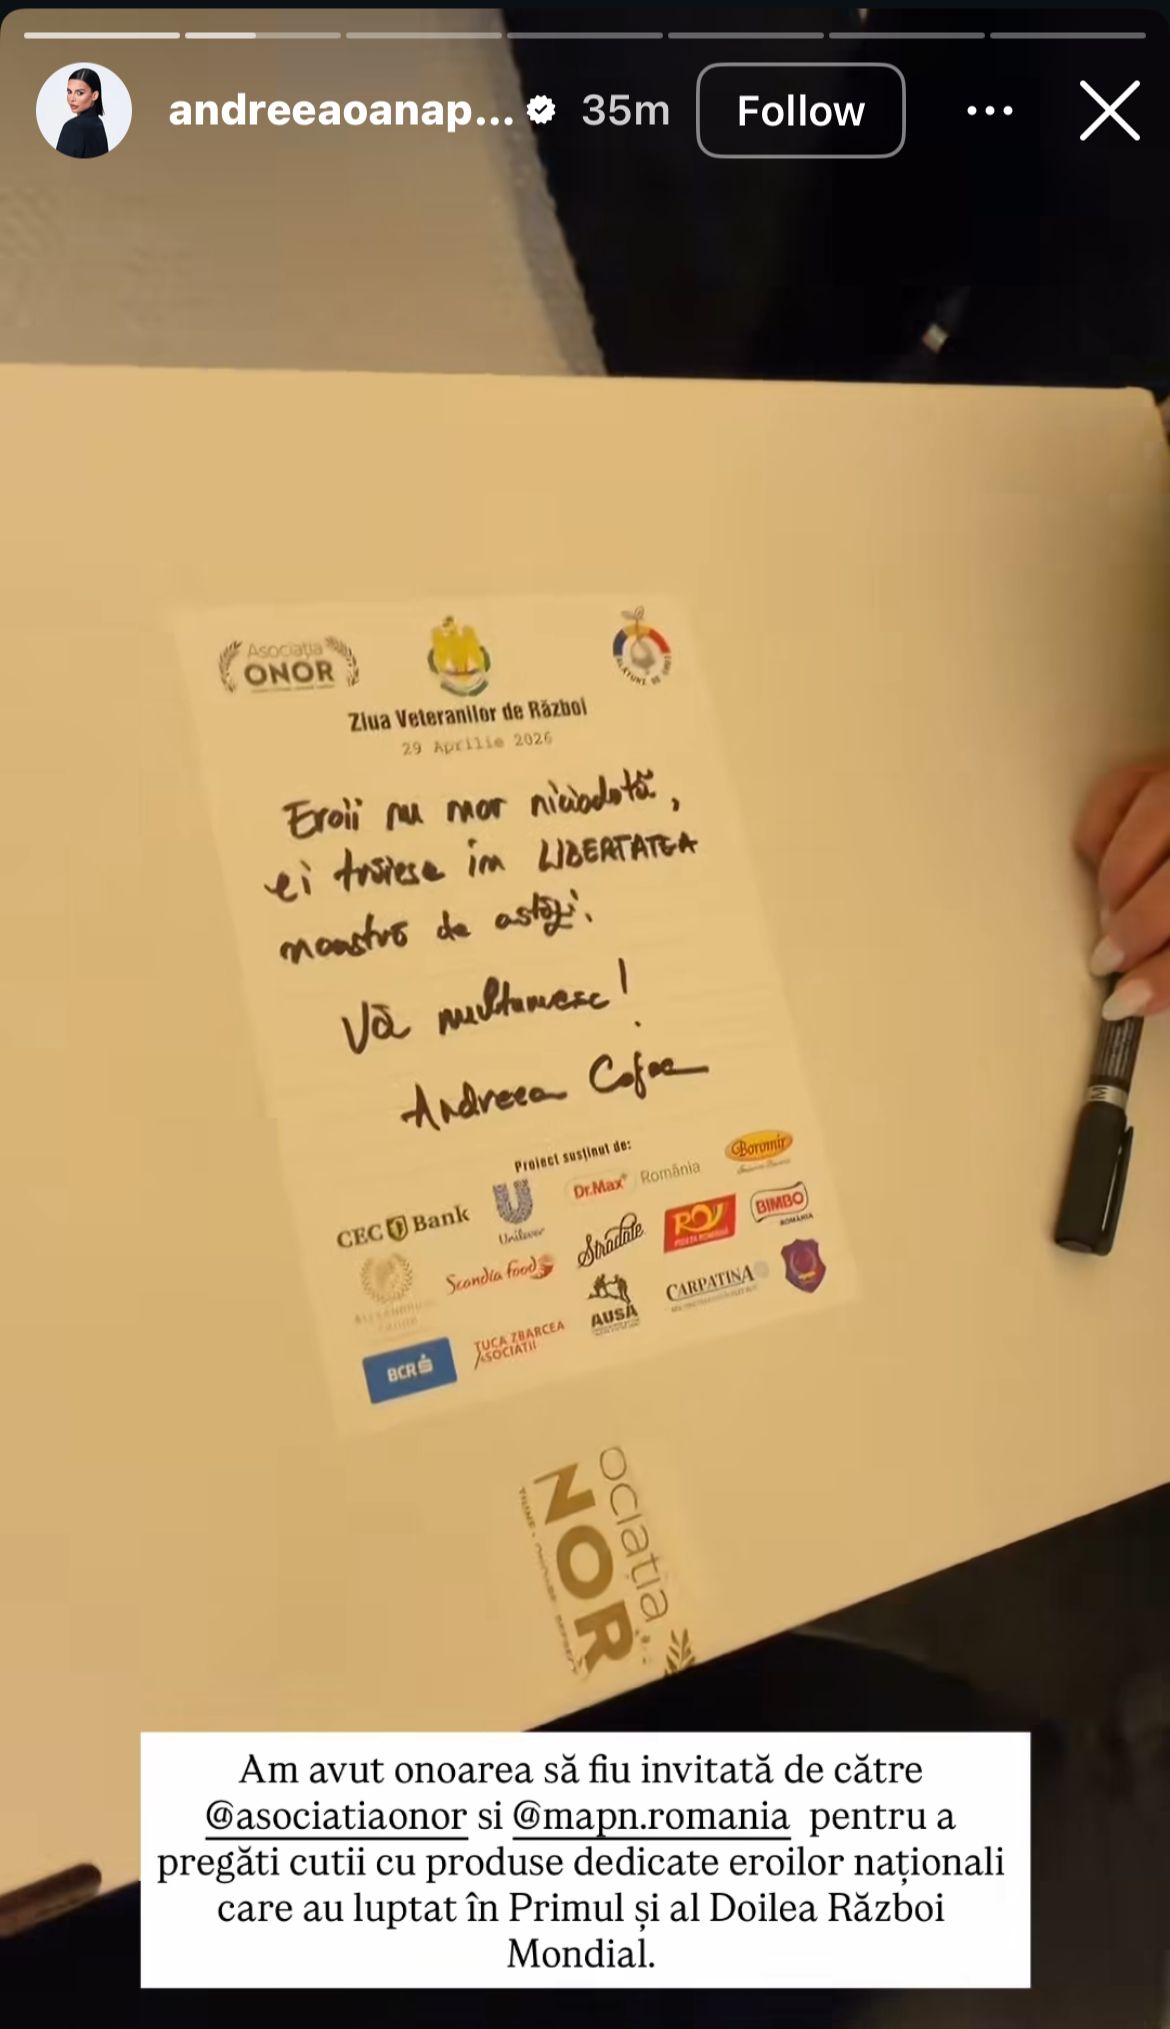 andreeaoanap... 35m Follow
Asociația
ONOR
ALĂTURI DE EROI
Ziua Veteranilor de Război
29 Aprilie 2026
Eroii nu mor niciodată,
ei trăiesc în LIBERTATEA
noastră de astăzi.
Vă mulțumesc!
Andreea
Proiect susținut de:
CEC Bank
Unilever
Dr.Max România
Boromir
Scandia food
Stradale
POȘTA ROMÂNĂ
BIMBO
ROMÂNIA
BCR
ȚUCA ZBÂRCEA
ASOCIAȚII
AUSA
CARPATINA
ociația
NOR
Am avut onoarea să fiu invitată de către
@asociatiaonor si @mapn.romania pentru a
pregăti cutii cu produse dedicate eroilor naționali
care au luptat în Primul și al Doilea Război
Mondial.